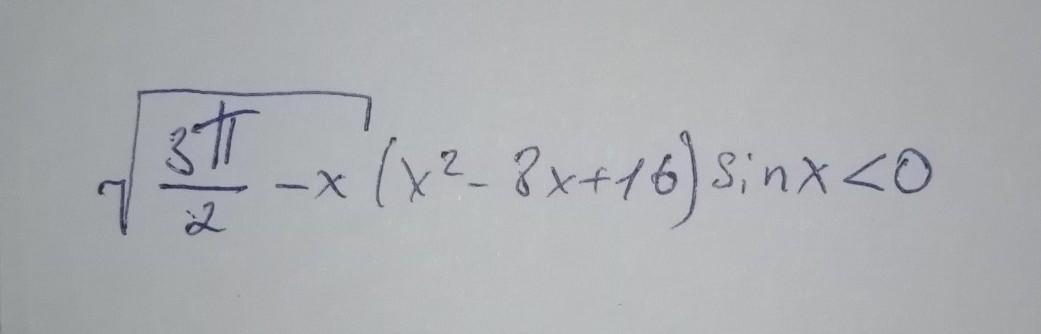 √(3π/2 - x) (x² - 8x + 16) sin x < 0